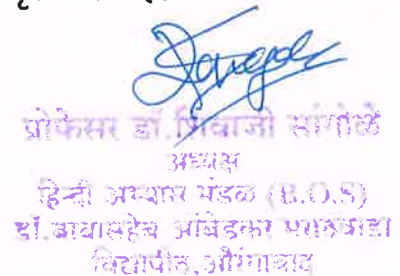 प्रोफेसर डॉ.शिवाजी सांगोळे
अध्यक्ष
हिन्दी अभ्यास मंडळ (B.O.S)
डॉ.बाबासाहेब आंबेडकर मराठवाडा
विद्यापीठ,औरंगाबाद